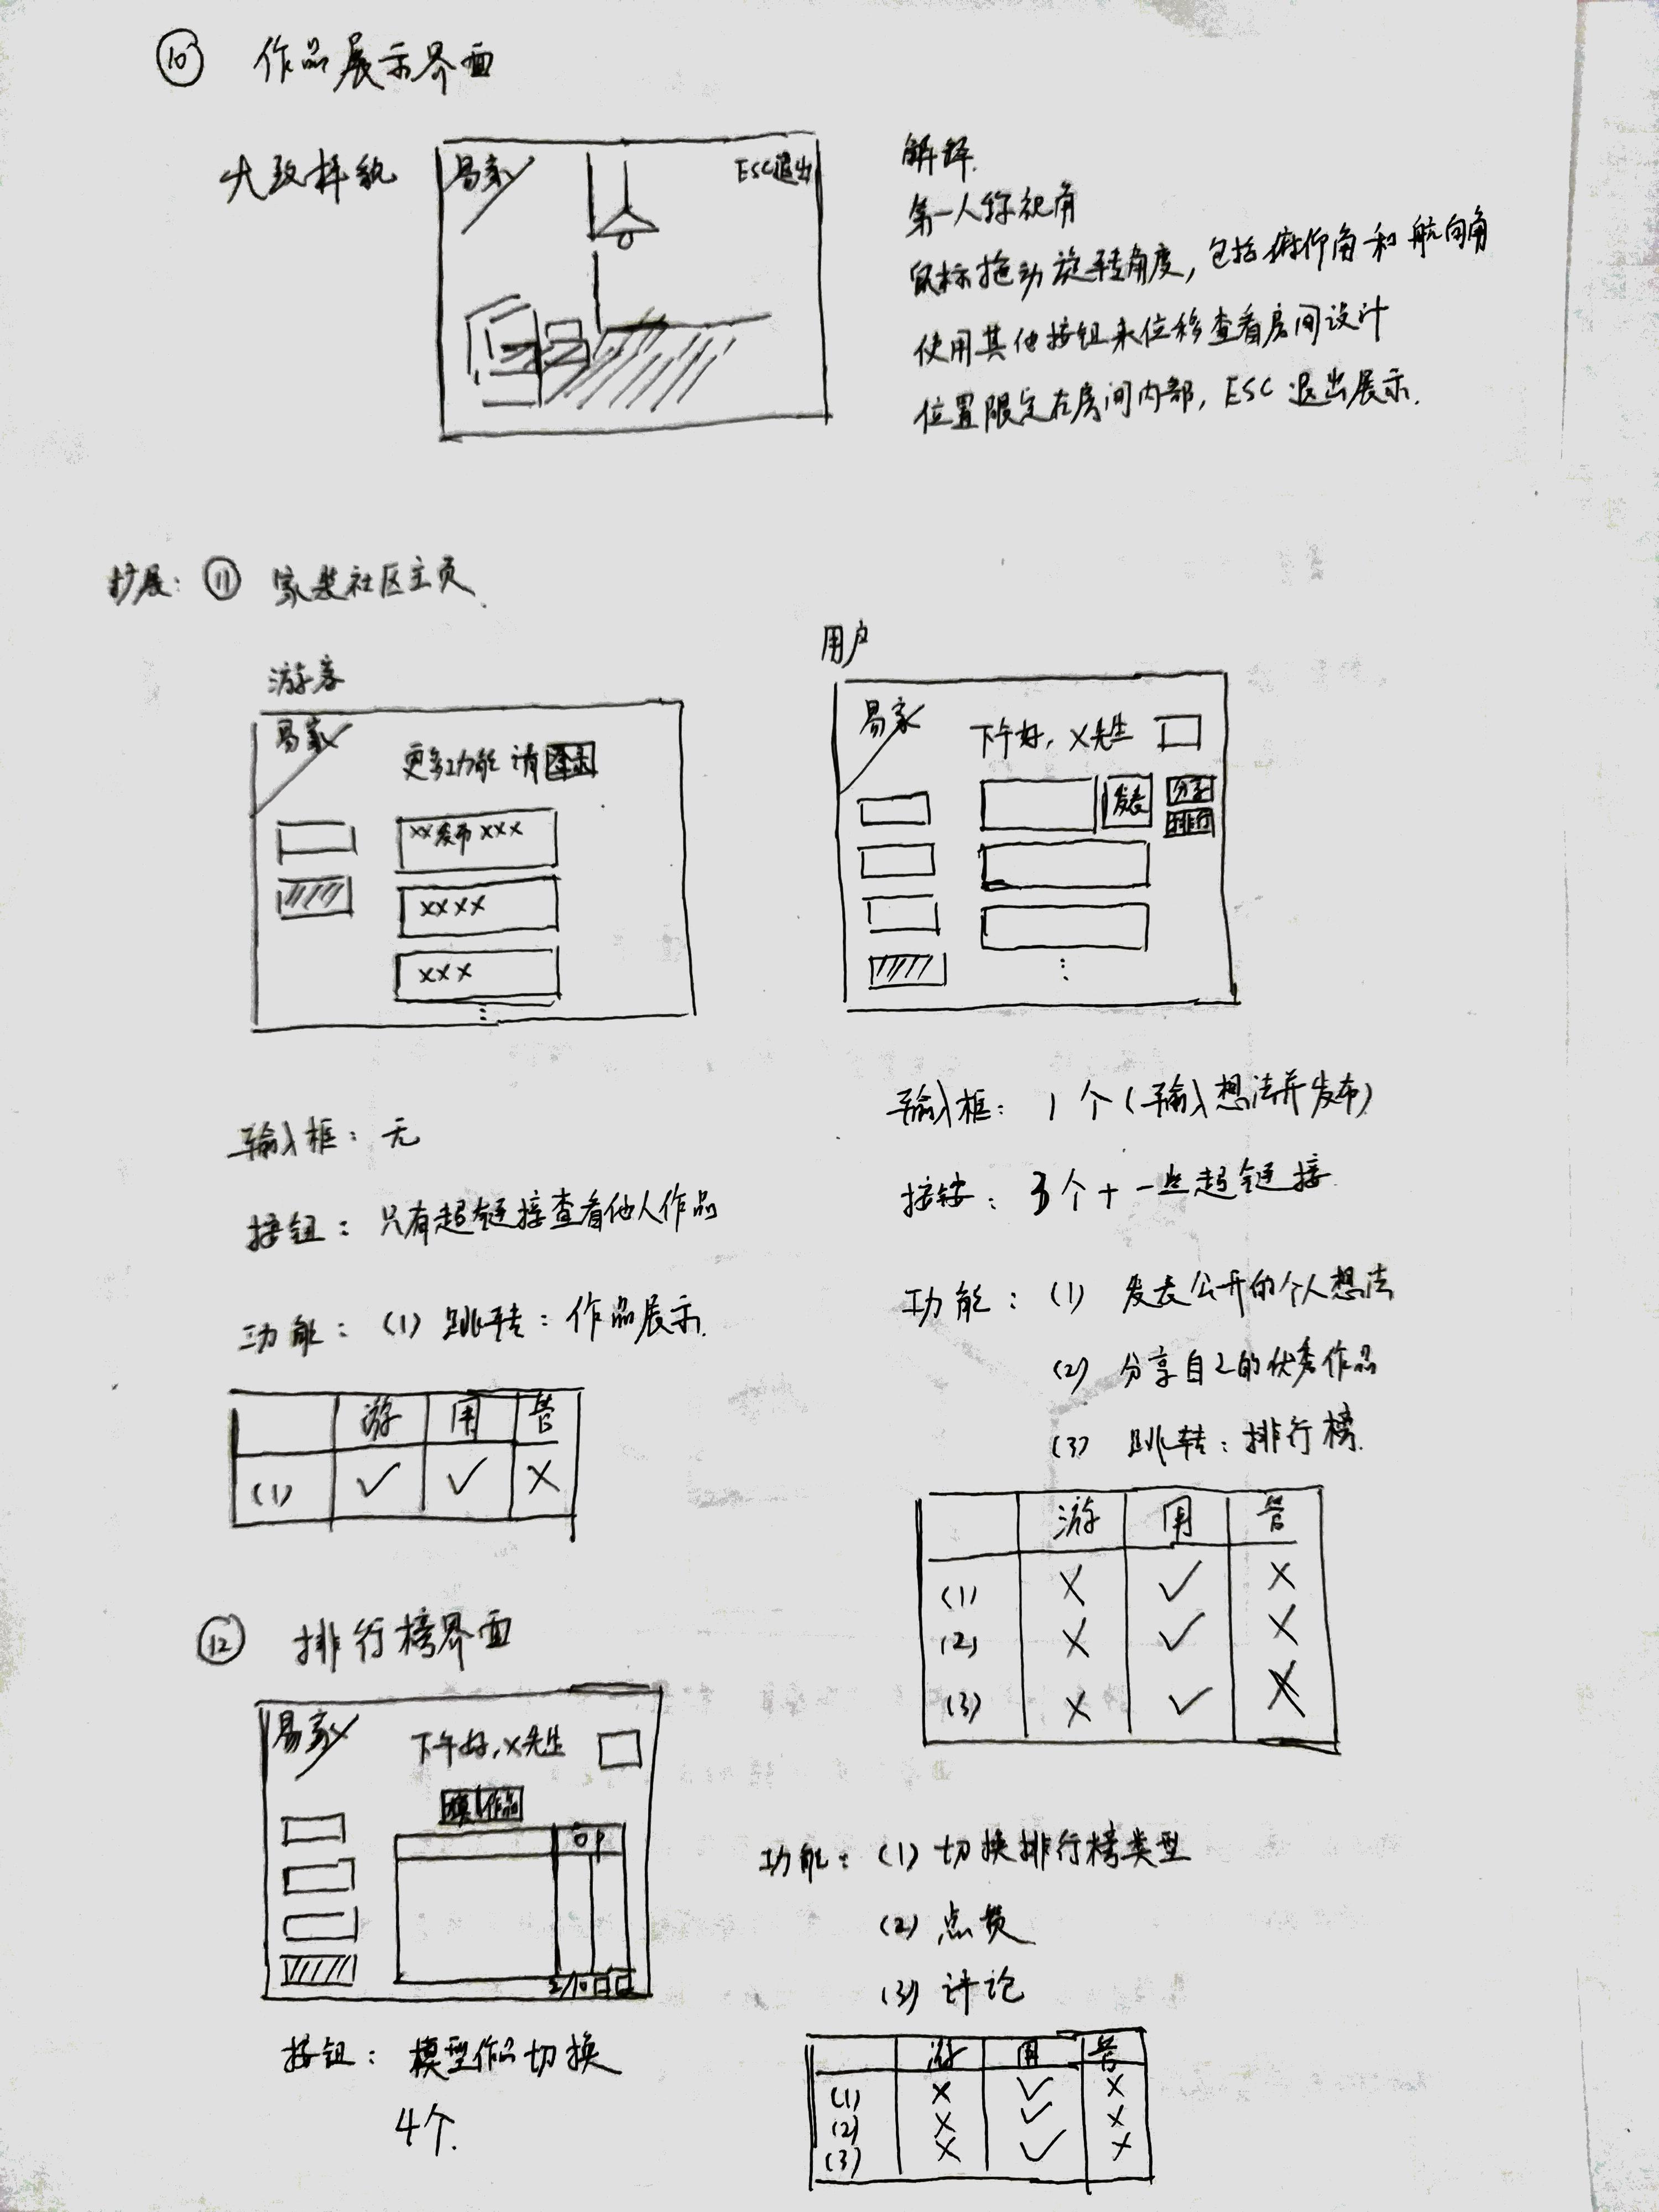 ⑩ 作品展示界面
大致样貌
易家
ESC退出
解释.
第一人称视角
鼠标拖动旋转角度,包括俯仰角和航向角
使用其他按钮来位移查看房间设计
位置限定在房间内部,ESC退出展示.
扩展: ⑪ 家装社区主页.
游客
易家
更多功能请登录
xx发布xxx
xxxx
xxx
⋮
输入框: 无
按钮: 只有超链接查看他人作品
功能: (1) 跳转: 作品展示.
游 用 管
(1) ✓ ✓ X
用户
易家
下午好, X先生
发表
分享
排行
⋮
输入框: 1个(输入想法并发布)
按钮: 3个+一些超链接.
功能: (1) 发表公开的个人想法
(2) 分享自己的优秀作品
(3) 跳转: 排行榜.
游 用 管
(1) X ✓ X
(2) X ✓ X
(3) X ✓ X
⑫ 排行榜界面
易家
下午好,X先生
作品
OP
按钮: 模型作品切换
4个.
功能: (1) 切换排行榜类型
(2) 点赞
(3) 评论
游 用 管
(1) X ✓ X
(2) X ✓ X
(3) X ✓ X